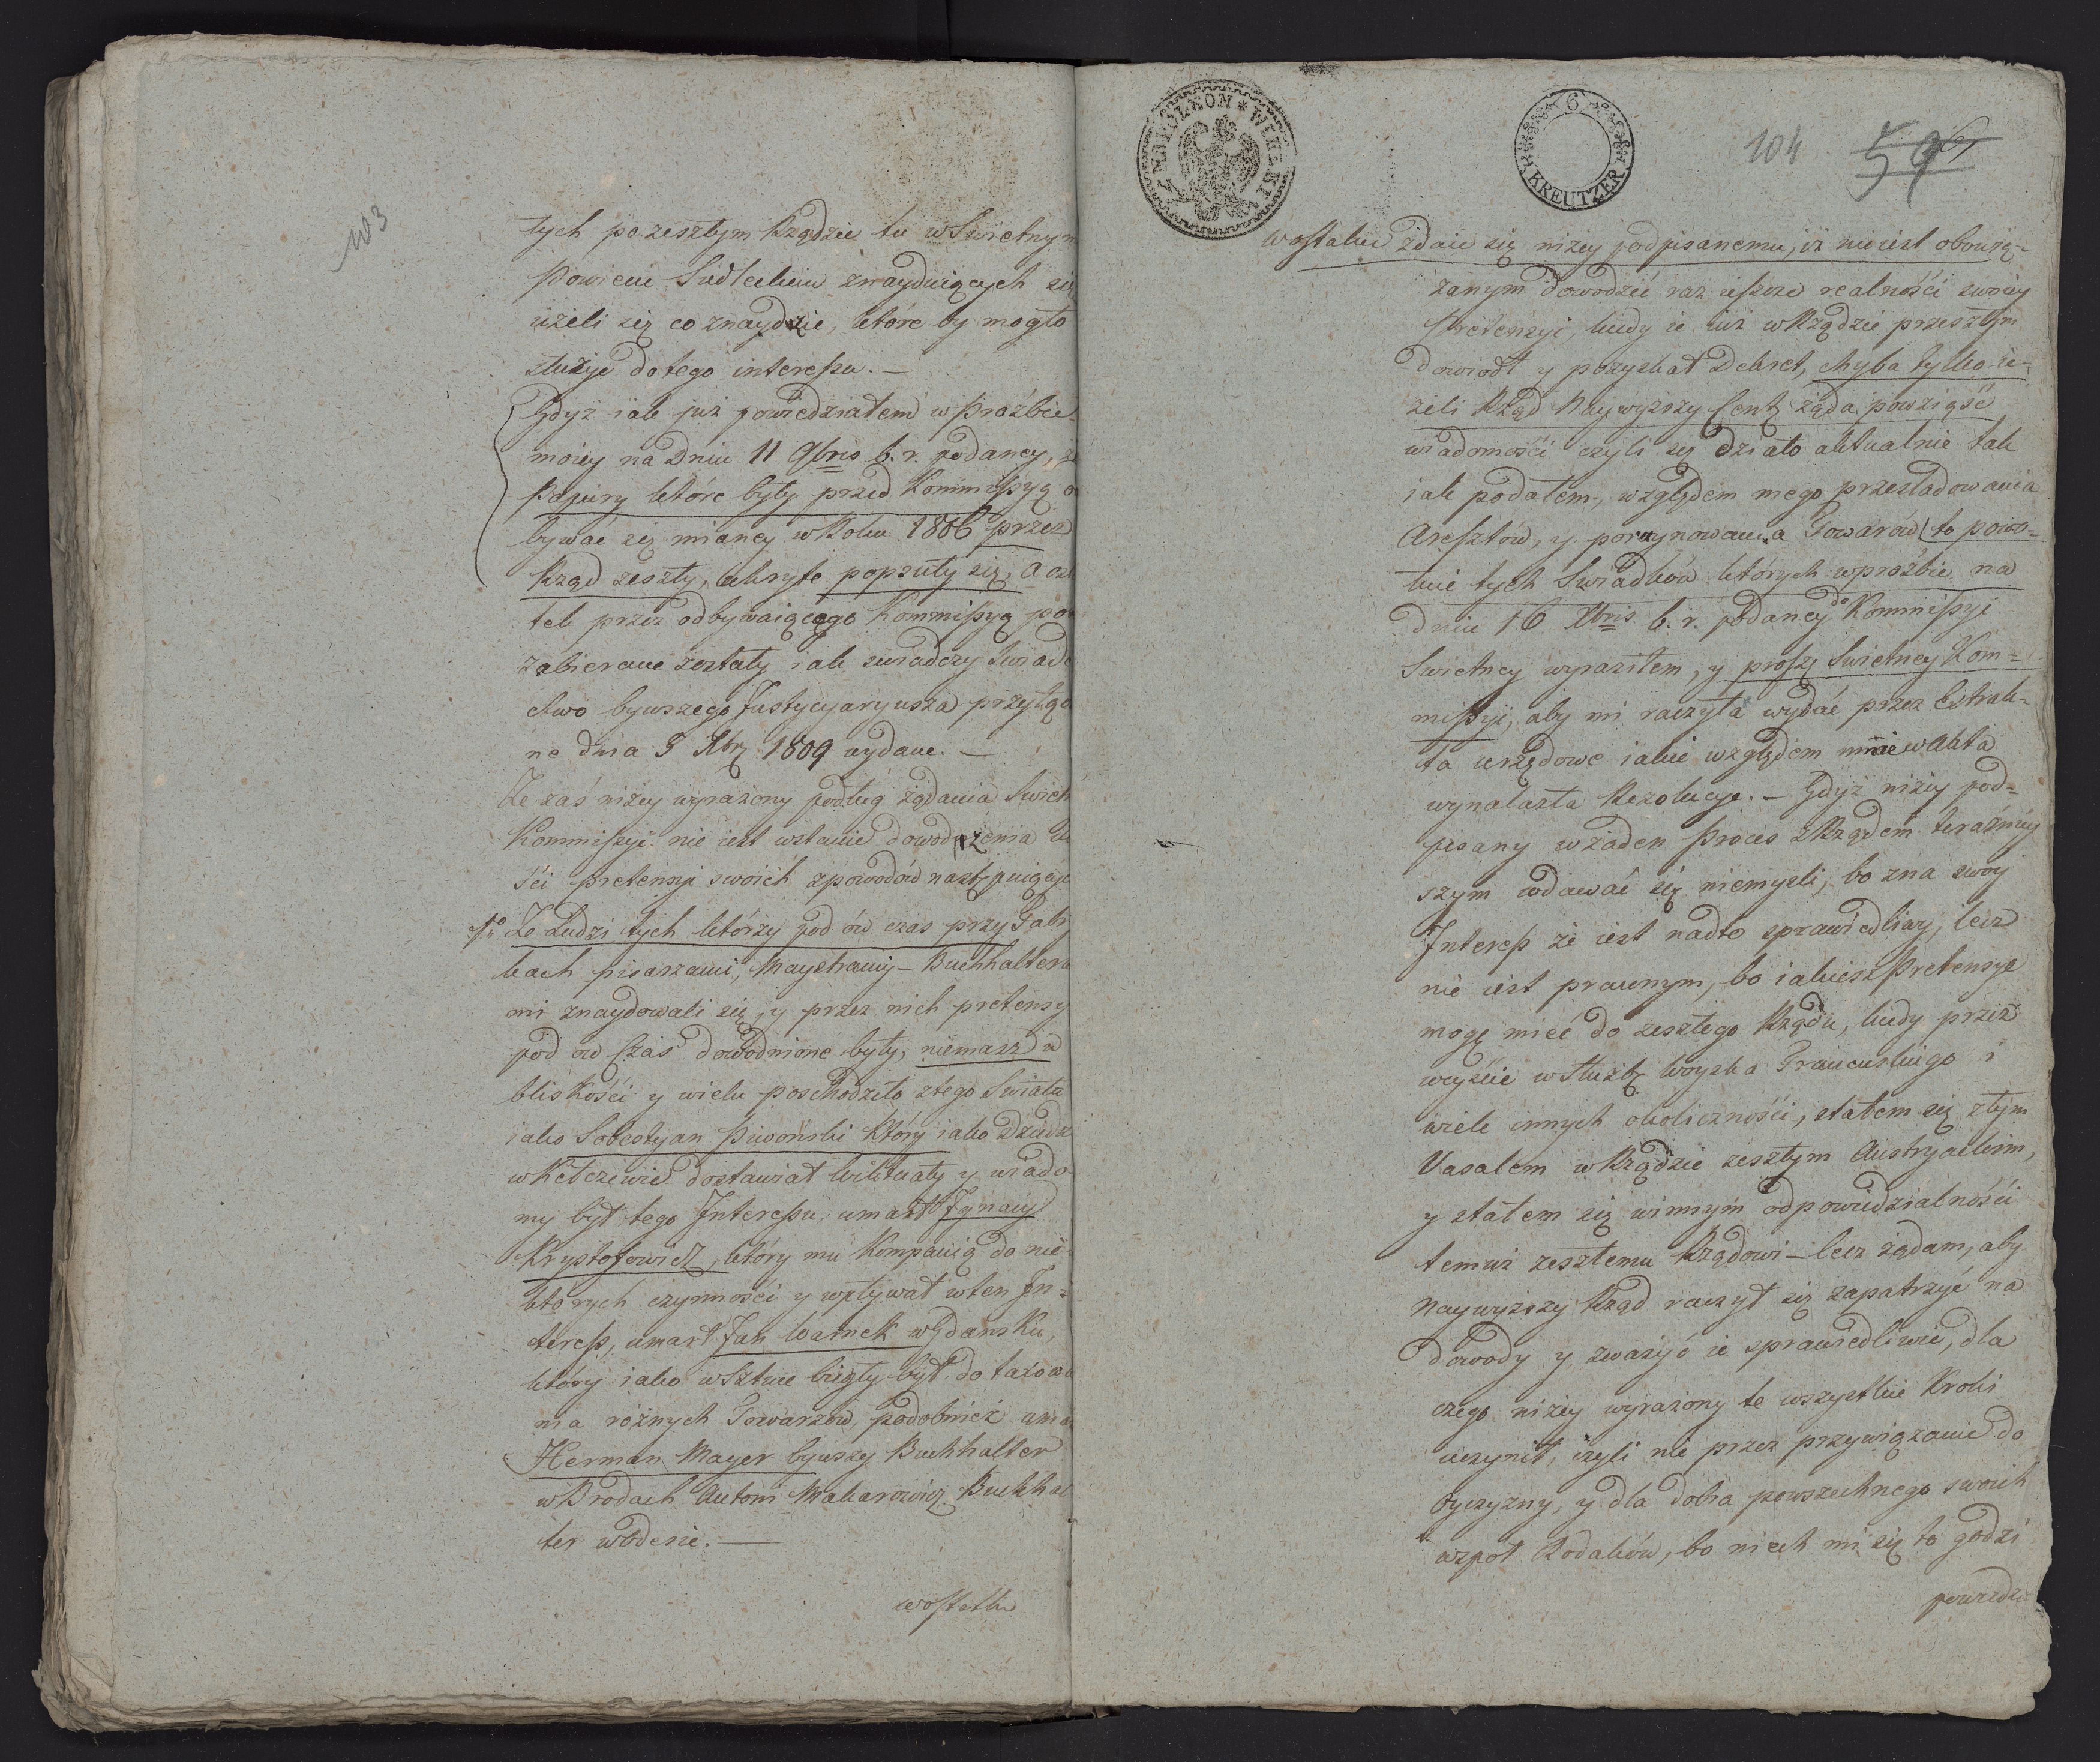 103
tych po zeszłym Rządzie tu w Swietnym
Powiecie Siedleckim znayduiących się
ieżeli się co znaydzie, które by mogło
służyć do tego interessu. —
Gdyż iak już powiedziałem w Proźbie
moiey na Dniu 11 9bris b. r. podaney, że
Papiery które były przed Kommissyą o
bywać się maiącey w Roku 1806 przez
Rząd zeszły, ukryte popsuły się, a
tek przez odbywaiącego Kommissyą po
zabierane zostały iak swiadczy Swiade
ctwo bywszego Justycyaryusza przyłą
ne dnia 3 Xbr. 1809 wydane. —
Ze zaś niżey wyrażony podług żądania Swiet
Kommissyi nie iest wstanie dowodzenia
ści pretensyi swoich z powodów następuiący
1o Ze Ludzi tych którzy pod ów czas przy Fabry
kach pisarzami, Maystrami — Buchhaltera
mi znaydowali się, y przez nich pretensy
pod ów Czas dowodnione były, niemasz w
bliskości y wielu poschodziło z tego Swiata
iako Sobestyan Piwoński który iako
dostawiał wiktuały y wiado-
my był tego Interessu, umarł Ignacy
Krystofowicz, który mu Kompanią do nie-
których czynności y wpływał w ten In-
teress, umarł Jan Warnek w Gdansku,
który iako w Sztuce biegły był do taxowa
nia różnych Towarzow, podobnież uma
Herman Mayer bywszy Buchhalter
w Brodach Antoni Makarowicz Buchhal
ter w Odesie. —
wostatku
NAPOLEON * WIELKI
6 KREUTZER
104
59
wostatku zdaie się niżey podpisanemu, iż nieiest obowią-
zanym dowodzić raz ieszcze realności swoiey
Pretensyi, kiedy ie iuż w Rządzie przeszłym
dowiodł y pozyskał Dekret, chyba tylko ie-
żeli Rząd Naywyższy Cent. żąda powziąść
wiadomości czyli się działo aktualnie tak
iak podałem, względem mego przesladowania
Aresztów, y poruynowania Towarów to powo-
łuie tych Swiadków których w proźbie na
dniu 16 Xbris b. r. podaney do Kommissyi
Swietney wyraziłem, y proszę Swietney Kom-
missyi, aby mi raczyła wydać przez Extrak-
ta urzędowe iakie względem mnie w Akta
wynalazła Rezolucye. — Gdyż niżey pod-
pisany w żaden Proces z Rządem teraźniey
szym wdawać się niemysli, bo zna swoy
Interess że iest nadto sprawiedliwy, lecz
nie iest prawnym, bo iakieiż Pretensye
mogę mieć do zeszłego Rządu, kiedy przez
weyście w Służbę Woyska Francuskiego i
wiele innych okoliczności, stałem się złym
Vasalem w Rządzie zeszłym Austryackim,
y stałem się winnym odpowiedzialności
temuż zeszłemu Rządowi — lecz żądam, aby
Naywyższy Rząd raczył się zapatrzyć na
dowody y zważyć ie sprawiedliwie, dla
czego niżey wyrażony te wszystkie Kroki
uczynił, czyli nie przez przywiązanie do
oyczyzny, y dla dobra powszechnego swoich
wspoł Rodaków, bo niech mi się to godzi
powiedzi